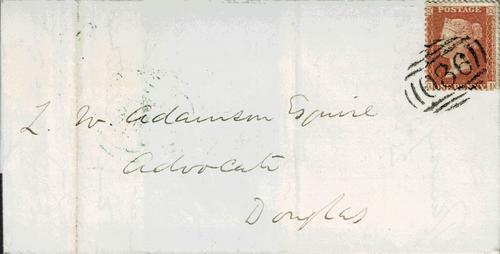 POSTAGE
036
L. W. Adamson Esquire
Advocate
Douglas